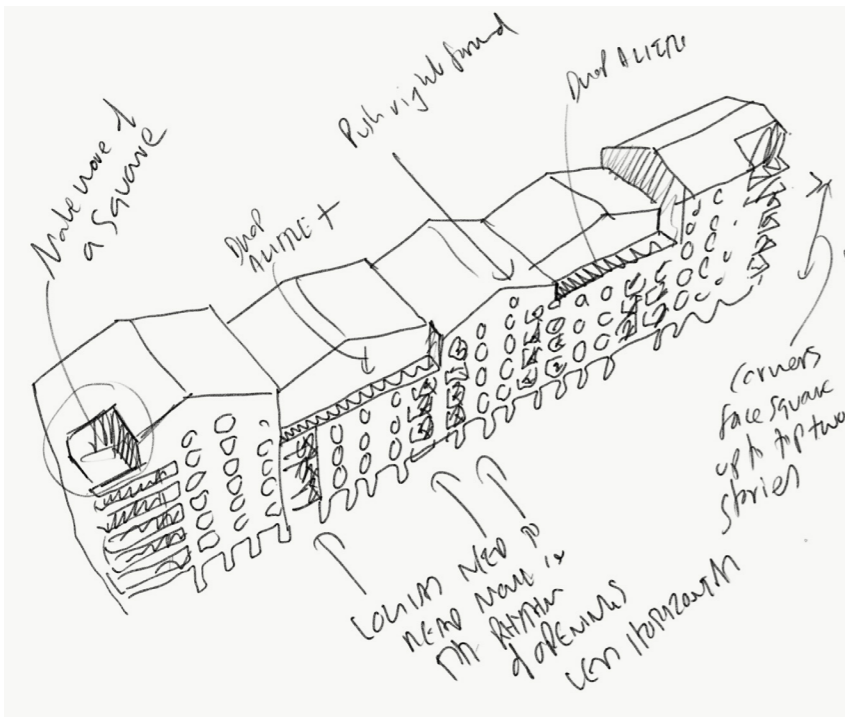 Make more of
a square
Drop
A LITTLE +
Push right forward
Drop A LITTLE
corners
face square
up to top two
stories
NEED TO
READ MORE IN
RHYTHM
of OPENINGS
LESS HORIZONTAL